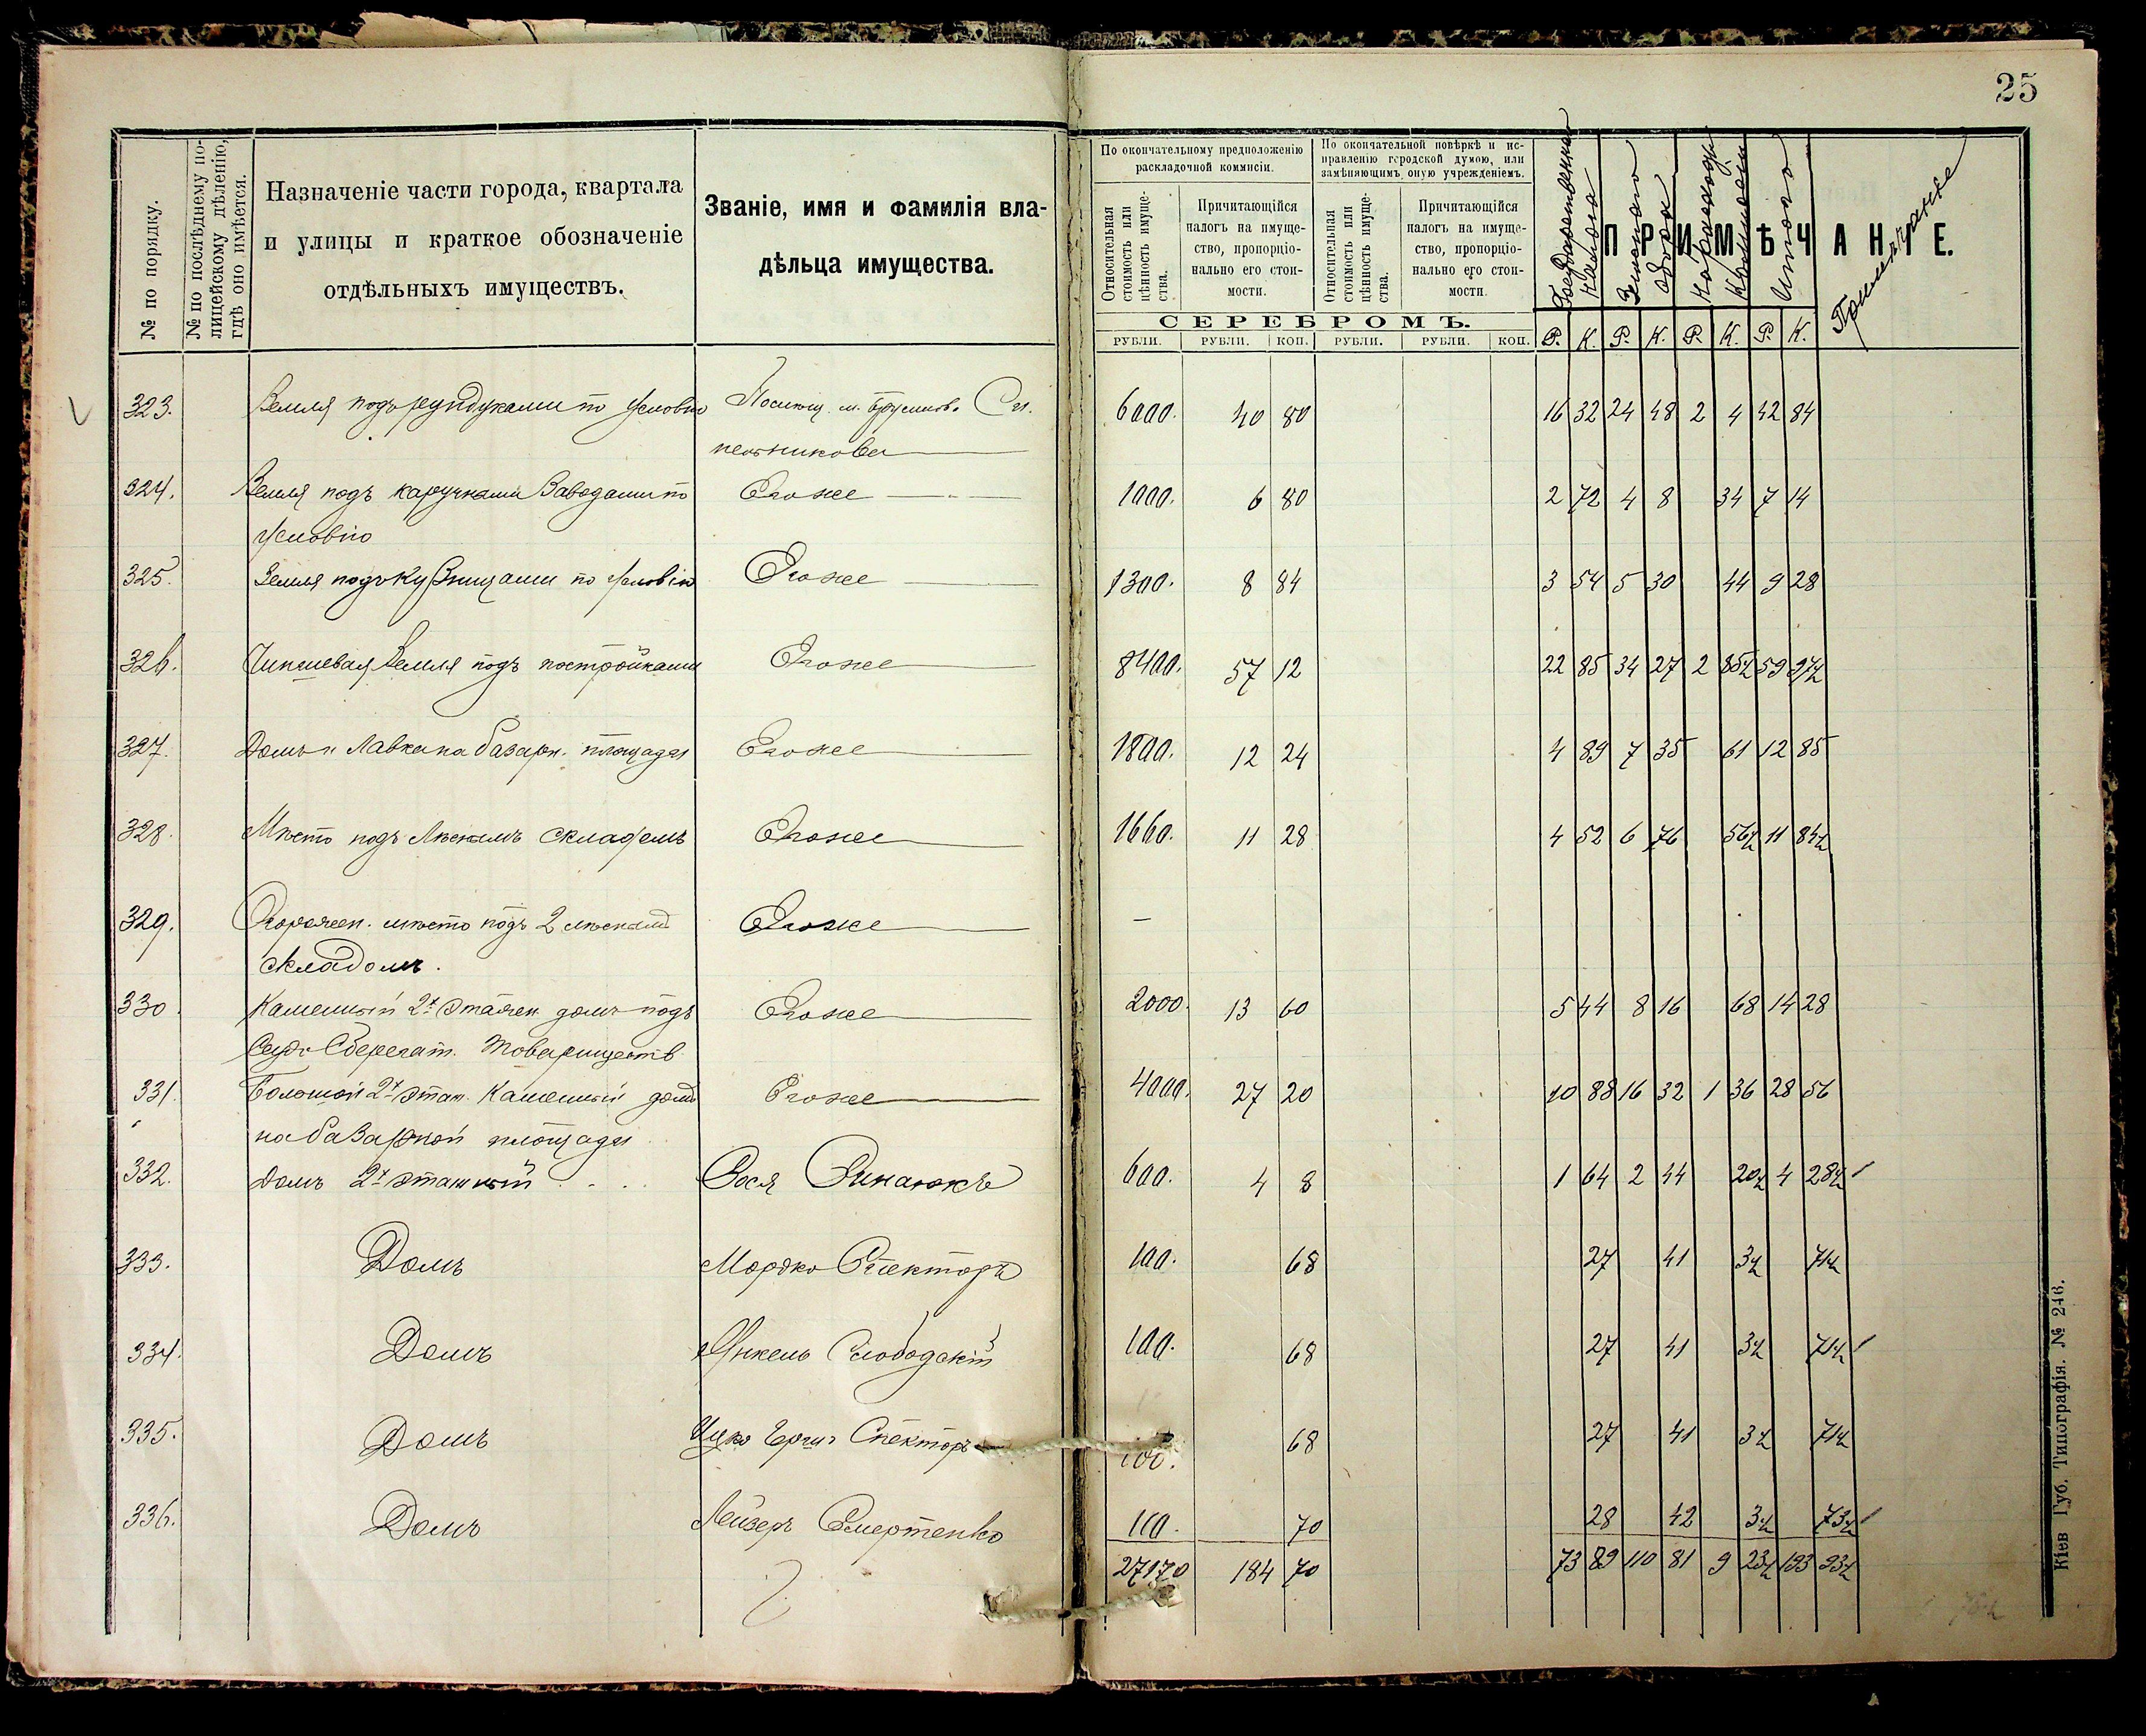 25
№ по порядку.
№ по послѣднему по-
лицейскому дѣленію,
гдѣ оно имѣется.
Назначеніе части города, квартала
и улицы и краткое обозначеніе
отдѣльныхъ имуществъ.
Званіе, имя и фамилія вла-
дѣльца имущества.
По окончательному предположенію
раскладочной коммисіи.
По окончательной повѣркѣ и ис-
правленію городской думою, или
замѣняющимъ оную учрежденіемъ.
Относительная
стоимость или
цѣнность имуще-
ства.
Причитающійся
налогъ на имуще-
ство, пропорціо-
нально его стои-
мости.
Относительная
стоимость или
цѣнность имуще-
ства.
Причитающійся
налогъ на имуще-
ство, пропорціо-
нально его стои-
мости.
СЕРЕБРОМЪ.
РУБЛИ. РУБЛИ. КОП. РУБЛИ. РУБЛИ. КОП.
ПРИМѢЧАНІЕ.
Государственнаго
налога
Земскаго
сбора
Итого
Примѣчаніе
Р. К. Р. К. Р. К. Р. К.
323. Земля подъ рундуками по Условію 6000. 40 80 16 32 24 48 2 4 42 84
324. Земля подъ Заводами по Егоже 1000. 6 80 2 72 4 8 34 7 14
Условію
325. Земля подъ Кузницами по Условію Егоже 1300. 8 84 3 54 5 30 44 9 28
326. Чиншевая Земля подъ постройками Егоже 8400. 57 12 22 85 34 27 2 85½ 59 97½
327. Домъ и Лавка на базарн. площади Егоже 1800. 12 24 4 89 7 35 61 12 85
328. Мѣсто подъ Лѣснымъ складомъ Егоже 1660. 11 28 4 52 6 76 56½ 11 84½
329. мѣсто подъ 2 лѣснымъ Егоже —
складомъ.
330. Каменный 2х этажн. домъ подъ Егоже 2000. 13 60 5 44 8 16 68 14 28
Сберегат. Товариществ
331. Большой 2х этаж. Каменный домъ Егоже 4000. 27 20 10 88 16 32 1 36 28 56
на базарной площади
332. Домъ 2х этажный 600. 4 8 1 64 2 44 20½ 4 28½
333. Домъ Мордко Спекторъ 100. 68 27 41 3½ 71½
334. Домъ Янкель Слободскій 100. 68 27 41 3½ 71½
335. Домъ Ицко Спекторъ 100. 68 27 41 3½ 71½
336. Домъ Лейзеръ Смертенко 110. 70 28 42 3½ 73½
27170 184 70 73 89 110 81 9 23½ 193 93½
Кіев Губ. Типографія. № 246.